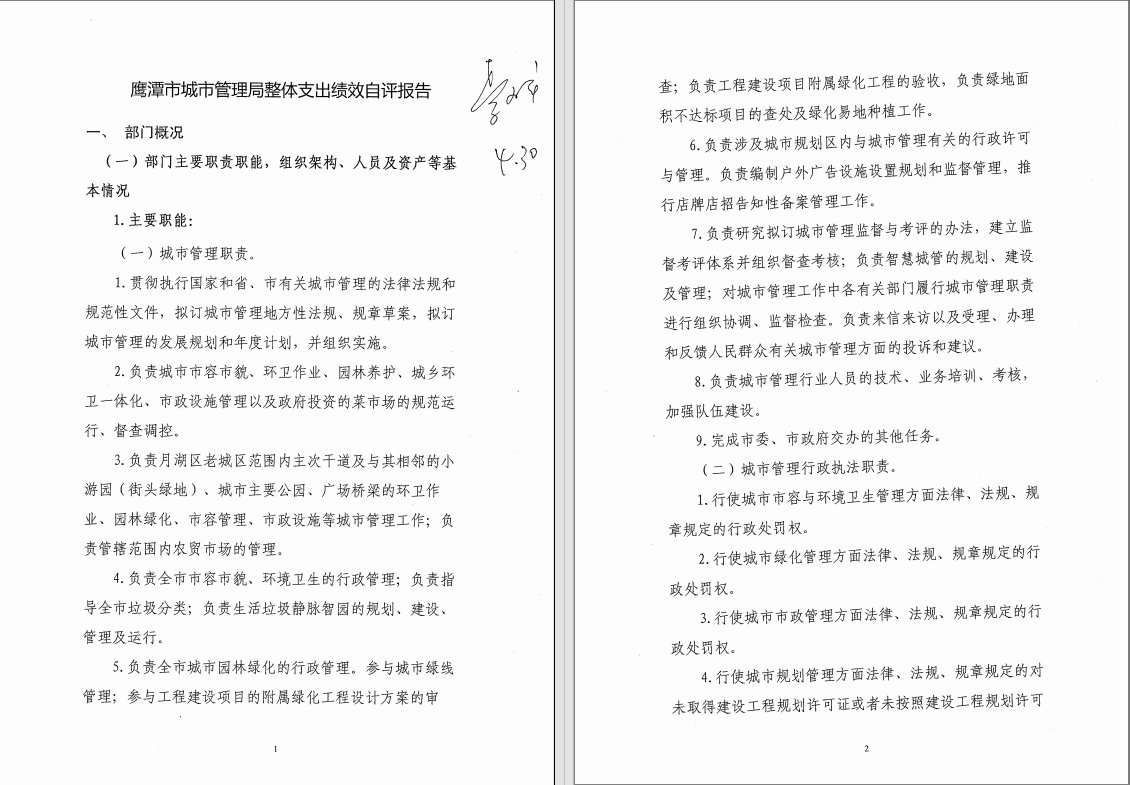 鹰潭市城市管理局整体支出绩效自评报告
4.30
一、 部门概况
（一）部门主要职责职能，组织架构、人员及资产等基
本情况
1.主要职能：
（一）城市管理职责。
1.贯彻执行国家和省、市有关城市管理的法律法规和
规范性文件，拟订城市管理地方性法规、规章草案，拟订
城市管理的发展规划和年度计划，并组织实施。
2.负责城市市容市貌、环卫作业、园林养护、城乡环
卫一体化、市政设施管理以及政府投资的菜市场的规范运
行、督查调控。
3.负责月湖区老城区范围内主次干道及与其相邻的小
游园（街头绿地）、城市主要公园、广场桥梁的环卫作
业、园林绿化、市容管理、市政设施等城市管理工作；负
责管辖范围内农贸市场的管理。
4.负责全市市容市貌、环境卫生的行政管理；负责指
导全市垃圾分类；负责生活垃圾静脉智园的规划、建设、
管理及运行。
5.负责全市城市园林绿化的行政管理。参与城市绿线
管理；参与工程建设项目的附属绿化工程设计方案的审
1
查；负责工程建设项目附属绿化工程的验收，负责绿地面
积不达标项目的查处及绿化易地种植工作。
6.负责涉及城市规划区内与城市管理有关的行政许可
与管理。负责编制户外广告设施设置规划和监督管理，推
行店牌店招告知性备案管理工作。
7.负责研究拟订城市管理监督与考评的办法，建立监
督考评体系并组织督查考核；负责智慧城管的规划、建设
及管理；对城市管理工作中各有关部门履行城市管理职责
进行组织协调、监督检查。负责来信来访以及受理、办理
和反馈人民群众有关城市管理方面的投诉和建议。
8.负责城市管理行业人员的技术、业务培训、考核，
加强队伍建设。
9.完成市委、市政府交办的其他任务。
（二）城市管理行政执法职责。
1.行使城市市容与环境卫生管理方面法律、法规、规
章规定的行政处罚权。
2.行使城市绿化管理方面法律、法规、规章规定的行
政处罚权。
3.行使城市市政管理方面法律、法规、规章规定的行
政处罚权。
4.行使城市规划管理方面法律、法规、规章规定的对
未取得建设工程规划许可证或者未按照建设工程规划许可
2